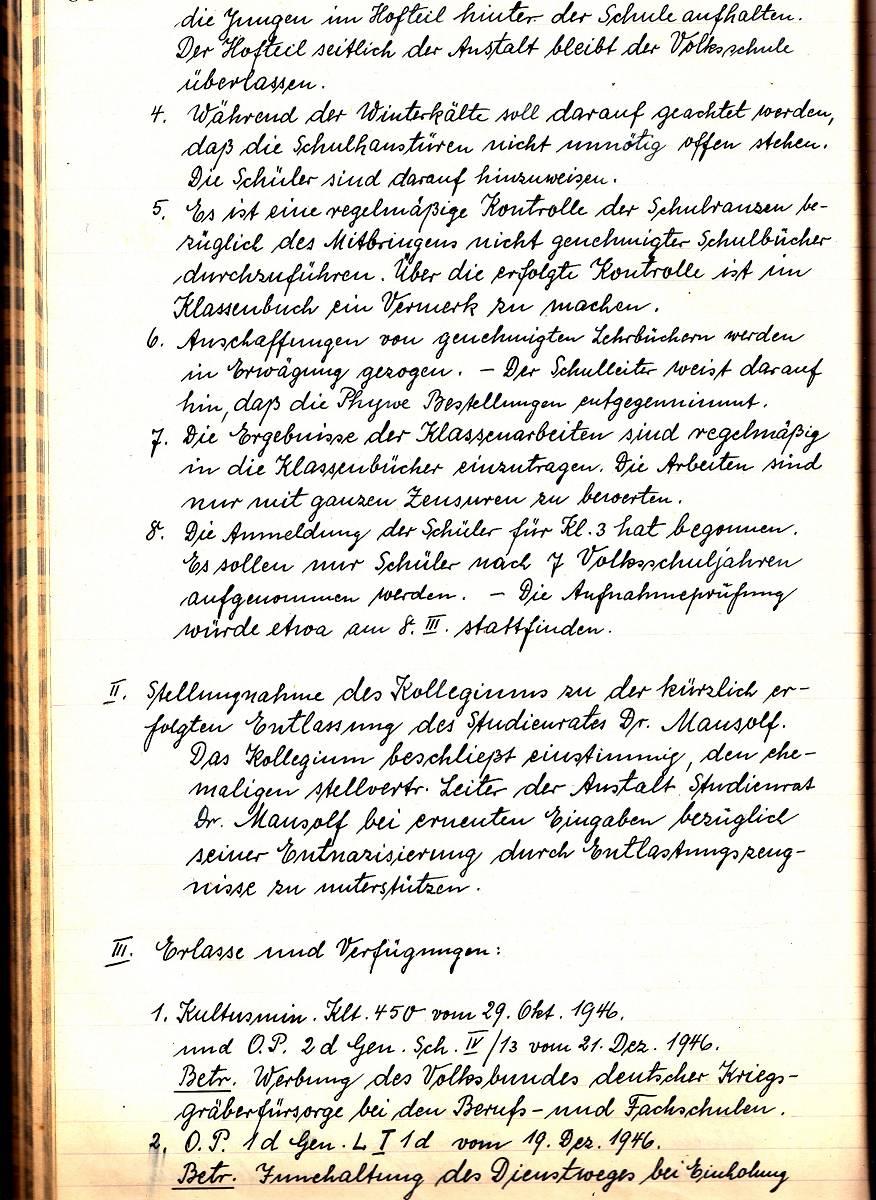 die Jungen im Hofteil hinter der Schule aufhalten.
Der Hofteil seitlich der Anstalt bleibt der Volksschule
überlassen.
4. Während der Winterkälte soll darauf geachtet werden,
daß die Schulhaustüren nicht unnötig offen stehen.
Die Schüler sind darauf hinzuweisen.
5. Es ist eine regelmäßige Kontrolle der Schulranzen be-
züglich des Mitbringens nicht genehmigter Schulbücher
durchzuführen. Über die erfolgte Kontrolle ist im
Klassenbuch ein Vermerk zu machen.
6. Anschaffungen von genehmigten Lehrbüchern werden
in Erwägung gezogen. – Der Schulleiter weist darauf
hin, daß die Phywe Bestellungen entgegennimmt.
7. Die Ergebnisse der Klassenarbeiten sind regelmäßig
in die Klassenbücher einzutragen. Die Arbeiten sind
nur mit ganzen Zensuren zu bewerten.
8. Die Anmeldung der Schüler für Kl. 3 hat begonnen.
Es sollen nur Schüler nach 7 Volksschuljahren
aufgenommen werden. – Die Aufnahmeprüfung
würde etwa am 8. III. stattfinden.
II. Stellungnahme des Kollegiums zu der kürzlich er-
folgten Entlassung des Studienrates Dr. Mansolf.
Das Kollegium beschließt einstimmig, den ehe-
maligen stellvertr. Leiter der Anstalt Studienrat
Dr. Mansolf bei erneuten Eingaben bezüglich
seiner Entnazisierung durch Entlastungszeug-
nisse zu unterstützen.
III. Erlasse und Verfügungen:
1. Kultusmin. Klt. 450 vom 29. Okt. 1946.
und O.P. 2d Gen. Sch. IV/13 vom 21. Dez. 1946.
Betr. Werbung des Volksbundes deutscher Kriegs-
gräberfürsorge bei den Berufs- und Fachschulen.
2. O.P. 1d Gen. L I 1d vom 19. Dez. 1946.
Betr. Innehaltung des Dienstweges bei Einholung